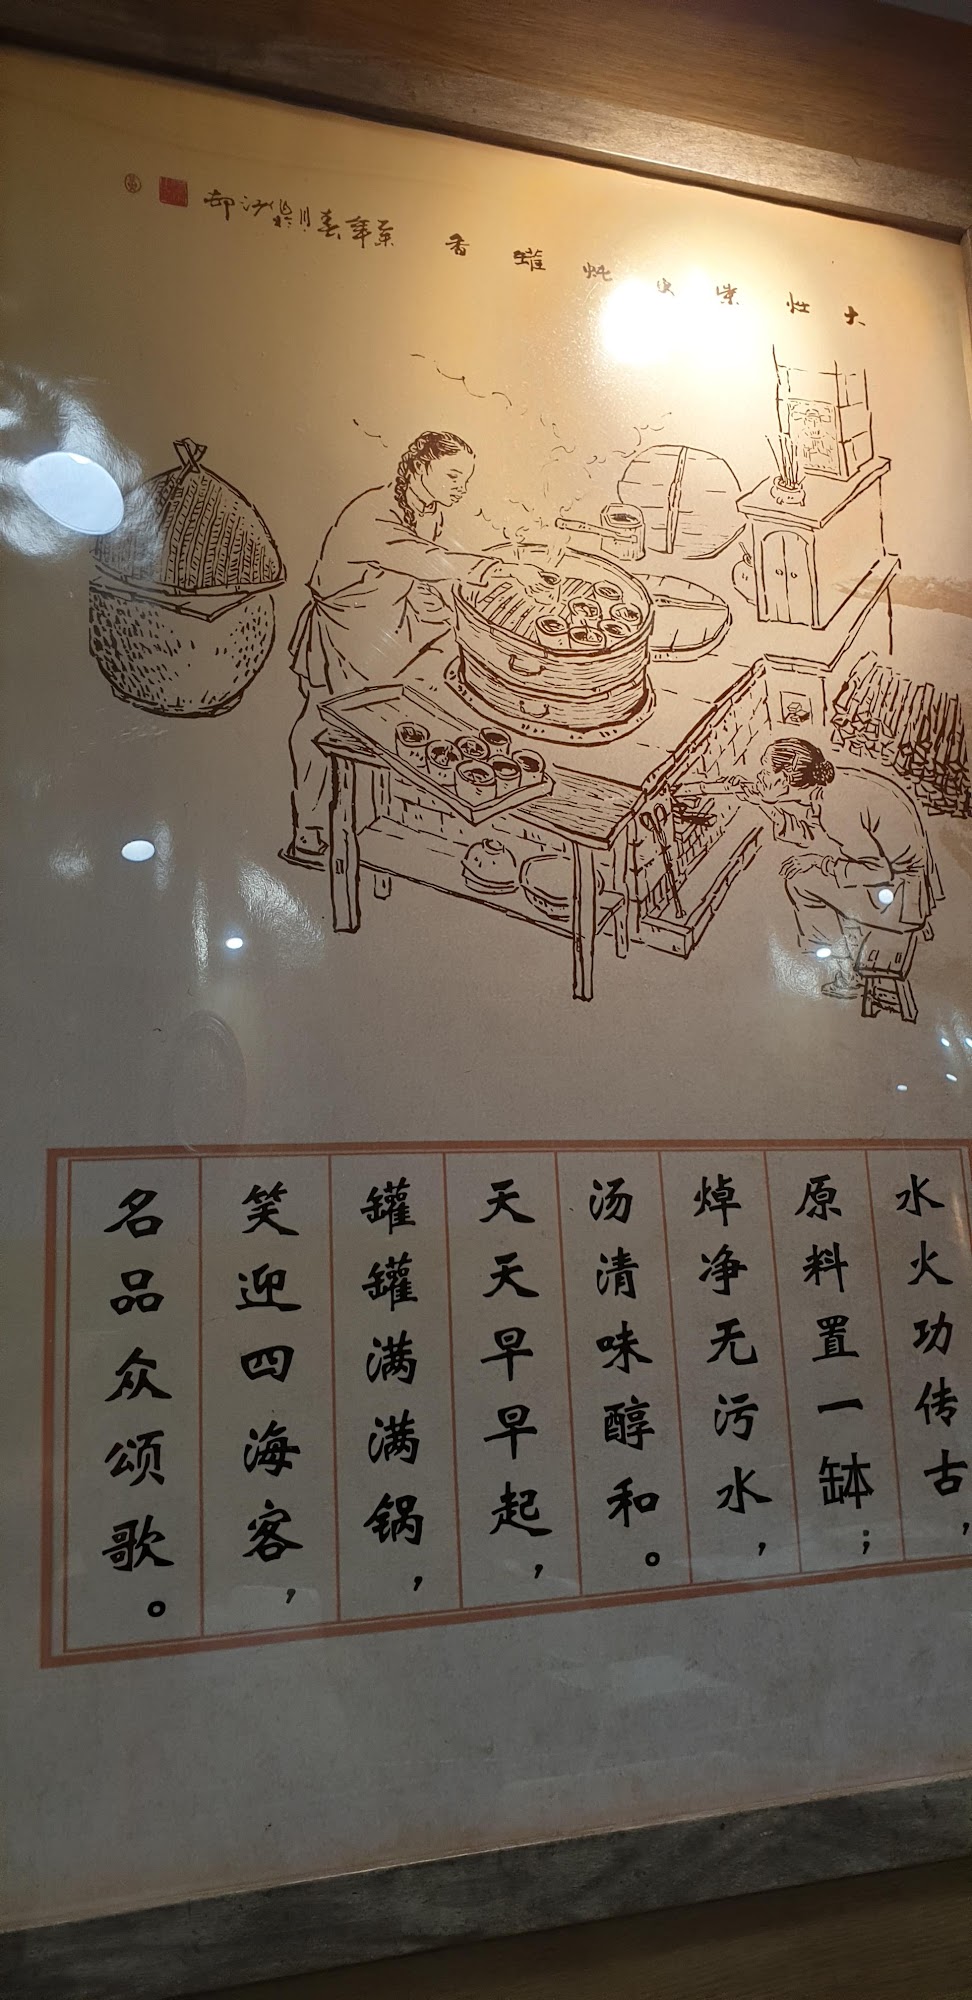 大灶柴火炖罐香
水火功传古，
原料置一钵；
焯净无污水，
汤清味醇和。
天天早早起，
罐罐满满锅，
笑迎四海客，
名品众颂歌。